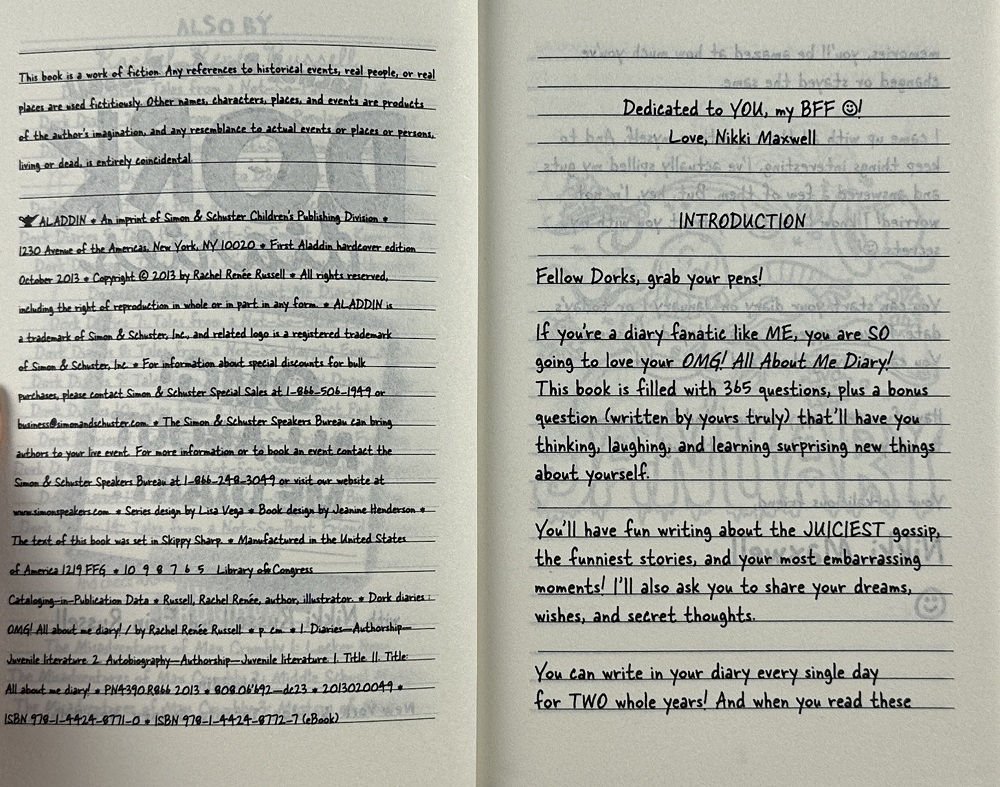 ALSO BY
This book is a work of fiction. Any references to historical events, real people, or real
places are used fictitiously. Other names, characters, places, and events are products
of the author's imagination, and any resemblance to actual events or places or persons,
living or dead, is entirely coincidental.
ALADDIN * An imprint of Simon & Schuster Children's Publishing Division *
1230 Avenue of the Americas, New York, NY 10020 * First Aladdin hardcover edition
October 2013 * Copyright © 2013 by Rachel Renée Russell * All rights reserved,
including the right of reproduction in whole or in part in any form. * ALADDIN is
a trademark of Simon & Schuster, Inc., and related logo is a registered trademark
of Simon & Schuster, Inc. * For information about special discounts for bulk
purchases, please contact Simon & Schuster Special Sales at 1-866-506-1949 or
business@simonandschuster.com. * The Simon & Schuster Speakers Bureau can bring
authors to your live event. For more information or to book an event contact the
Simon & Schuster Speakers Bureau at 1-866-248-3049 or visit our website at
www.simonspeakers.com. * Series design by Lisa Vega * Book design by Jeanine Henderson *
The text of this book was set in Skippy Sharp. * Manufactured in the United States
of America 1219 FFG * 10 9 8 7 6 5 Library of Congress
Cataloging-in-Publication Data * Russell, Rachel Renée, author, illustrator. * Dork diaries :
OMG! All about me diary! / by Rachel Renée Russell * p. cm. * 1. Diaries—Authorship—
Juvenile literature 2. Autobiography—Authorship—Juvenile literature. I. Title. II. Title:
All about me diary! * PN4390.R866 2013 * 808.06'692—dc23 * 2013020049 *
ISBN 978-1-4424-8771-0 * ISBN 978-1-4424-8772-7 (eBook)
Dedicated to YOU, my BFF ☺!
Love, Nikki Maxwell
INTRODUCTION
Fellow Dorks, grab your pens!
If you're a diary fanatic like ME, you are SO
going to love your OMG! All About Me Diary!
This book is filled with 365 questions, plus a bonus
question (written by yours truly) that'll have you
thinking, laughing, and learning surprising new things
about yourself.
You'll have fun writing about the JUICIEST gossip,
the funniest stories, and your most embarrassing
moments! I'll also ask you to share your dreams,
wishes, and secret thoughts.
You can write in your diary every single day
for TWO whole years! And when you read these